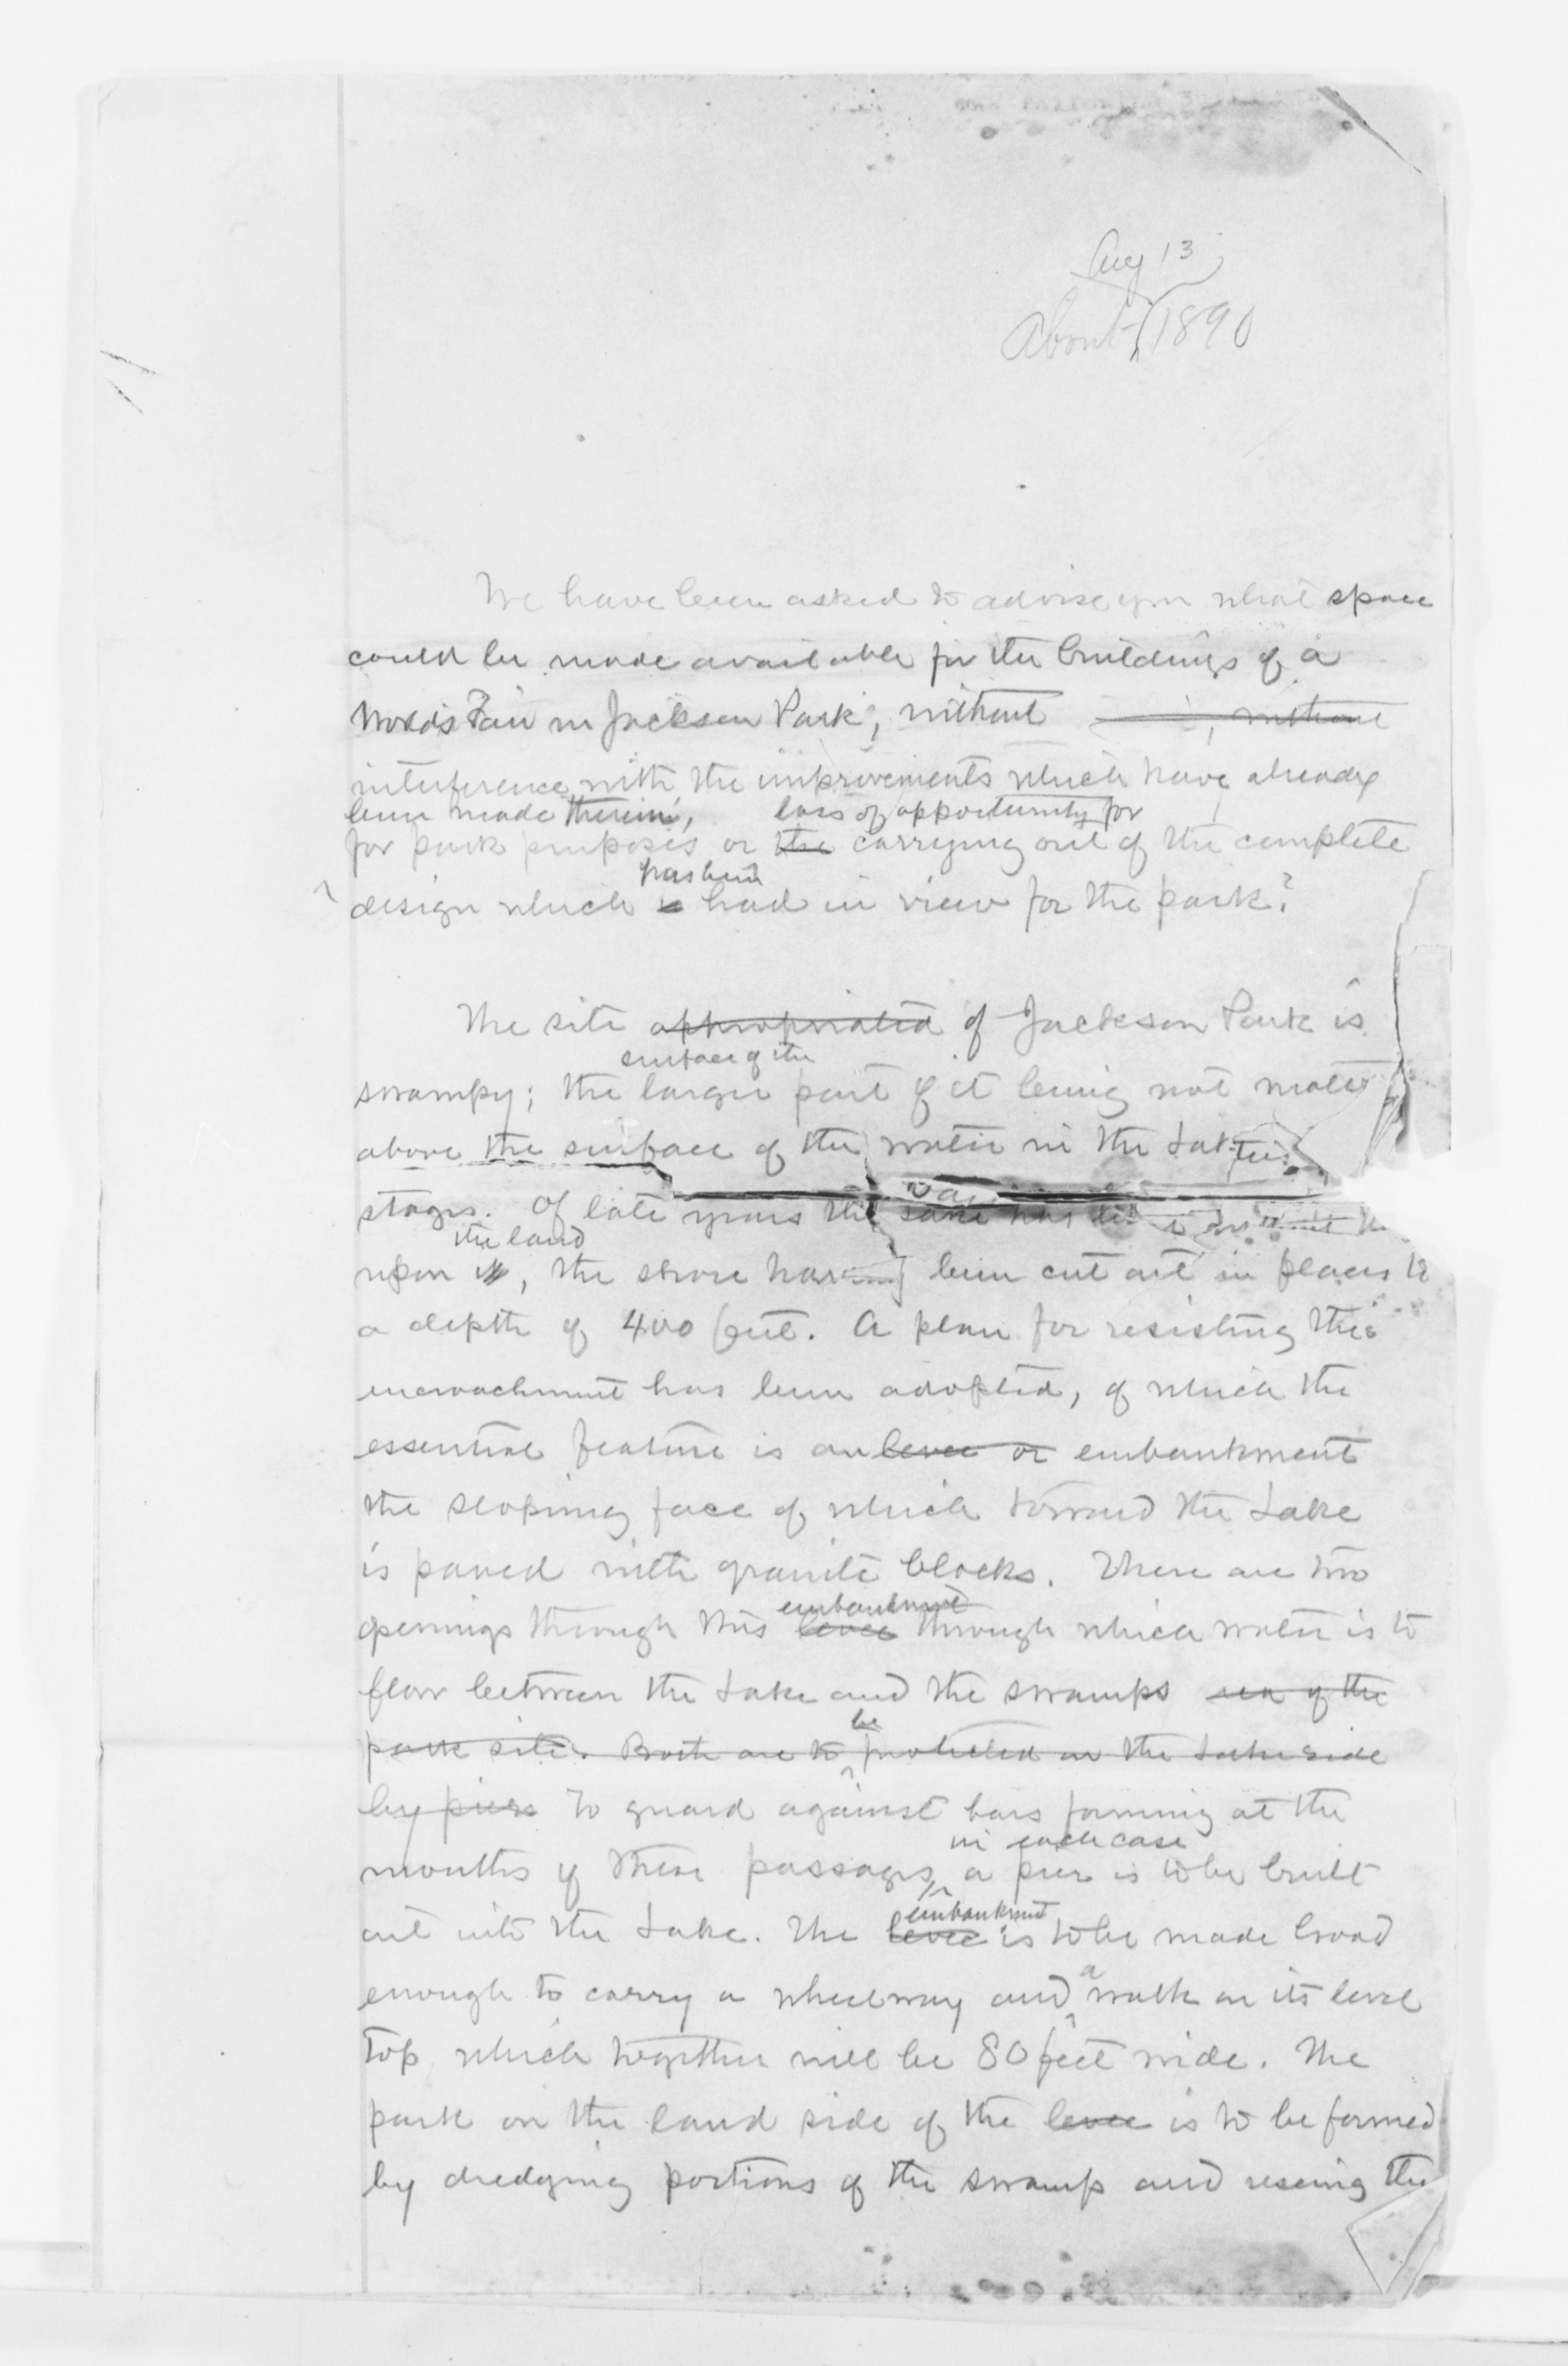 Aug 13
About 1890
We have been asked to advise you what space
could be made available for the buildings of a
World's Fair in Jackson Park, without without
interference with the improvements which have already
been made therein, loss of opportunity for
for park purposes or the carrying out of the complete
has been
design which is had in view for the park?
The site appropriated of Jackson Park is
surface of the
swampy; the larger part of it being not much
above the surface of the water in the Lake
stages. Of late years the Lake has
the land
upon it, the shore having been cut out in places to
a depth of 400 feet. A plan for resisting this
encroachment has been adopted, of which the
essential feature is an levee or embankment
the sloping face of which toward the Lake
is paved with granite blocks. There are two
embankment
openings through this levee through which water is to
flow between the Lake and the swamps of the
be
park site. Both are to protected on the Lake side
by piers To guard against bars forming at the
in each case
mouths of these passages, a pier is to be built
embankment
out into the Lake. The levee is to be made broad
a
enough to carry a wheelway and walk on its level
top which together will be 80 feet wide. The
park on the land side of the levee is to be formed
by dredging portions of the swamp and the